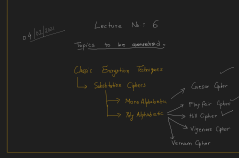 Lecture No: 6
04/02/2021
Topics to be covered.
Classic Encryption Techniques
Substitution Ciphers
Mono Alphabetic
Poly Alphabetic
Caesar Cipher
Playfair Cipher
Hill Cipher
Vigenere Cipher
Vernam Cipher